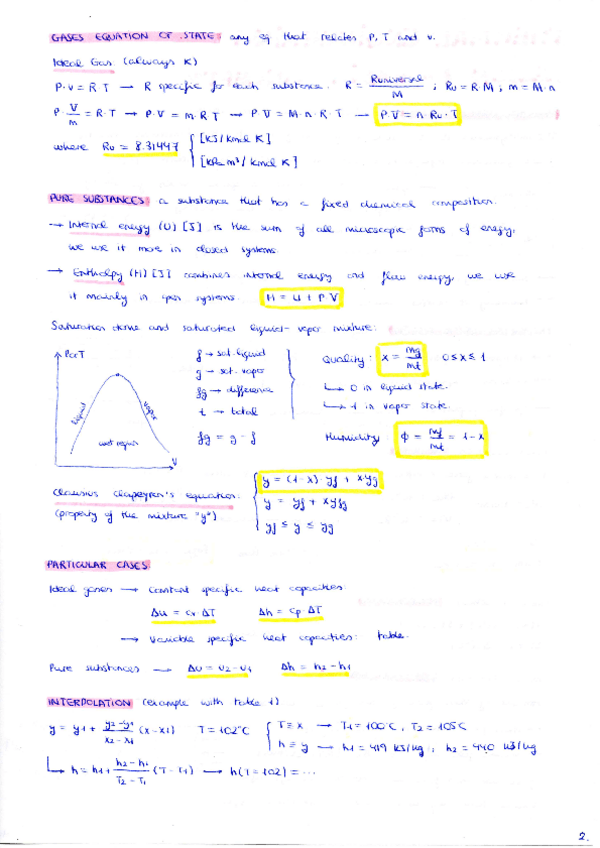 GASES EQUATION OF STATE: any eq that relates P, T and v.
Ideal Gas (always K)
P·v = R·T → R specific for each substance. R = Runiversal / M ; Ru = R·M ; m = M·n
P· V/m = R·T → P·V = m·R·T → P·V = M·n·R·T → P·V = n·Ru·T
where Ru = 8.31447 { [kJ/kmol K]
[kPa m³/kmol K]
PURE SUBSTANCES: a substance that has a fixed chemical composition.
→ Internal energy (U) [J] is the sum of all microscopic forms of energy,
we use it more in closed systems
→ Enthalpy (H) [J] combines internal energy and flow energy, we use
it mainly in open systems. H = U + P·V
Saturation dome and saturated liquid-vapor mixture:
P or T
liquid
vapor
wet region
V
f → sat. liquid
g → sat. vapor
fg → difference
t → total
fg = g - f
Quality: x = mg/mt 0 ≤ x ≤ 1
↳ 0 in liquid state.
↳ 1 in vapor state.
Humidity ϕ = mf/mt = 1 - x
Clausius Clapeyron's equation:
(property of the mixture "y")
y = (1-x)·yf + x·yg
y = yf + x yfg
yf ≤ y ≤ yg
PARTICULAR CASES
Ideal gases → Constant specific heat capacities:
Δu = cv·ΔT Δh = cp·ΔT
→ Variable specific heat capacities: table.
Pure substances → Δu = u2 - u1 Δh = h2 - h1
INTERPOLATION (example with table 1)
y = y1 + (y2 - y1)/(x2 - x1) (x - x1) T = 102°C { T ≡ x → T1 = 100°C, T2 = 105°C
h ≡ y → h1 = 419 kJ/kg ; h2 = 440 kJ/kg
↳ h = h1 + (h2 - h1)/(T2 - T1) (T - T1) → h(T=102) = ...
2.